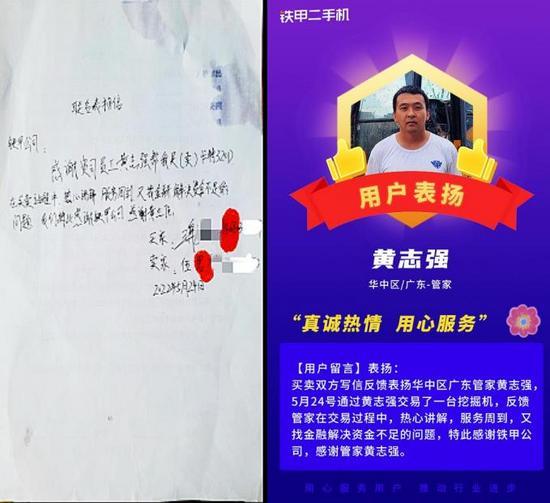 联名表扬信
铁甲公司：
感谢贵司员工黄志强帮我买(卖)
在买卖过程中，热心讲解 服务周到 又找金融解决资金不足的
问题
感谢铁甲公司
买家：
卖家：伍
2022年5月24日
铁甲二手机
用户表扬
黄志强
华中区/广东-管家
“真诚热情 用心服务”
【用户留言】表扬：
买卖双方写信反馈表扬华中区广东管家黄志强，
5月24号通过黄志强交易了一台挖掘机，反馈
管家在交易过程中，热心讲解，服务周到，又
找金融解决资金不足的问题，特此感谢铁甲公
司，感谢管家黄志强。
用心服务用户 推动行业进步